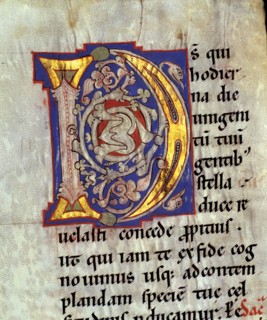 Ds̄ qui
hodier
na die
unigeni
tū tuū
gentibꝰ
stella
duce re
uelasti concede ꝓpitius.
ut qui iam te ex fide cog
nouimus usq; ad contem
plandam speciē tue cel
situdinis ꝑducamur.